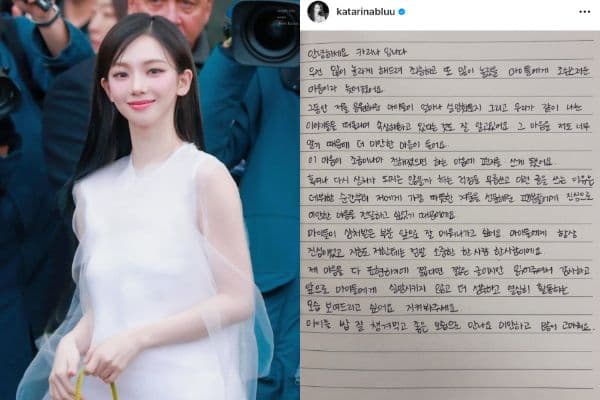 katarinabluu
안녕하세요 카리나 입니다
우선 많이 놀라게 해드려 죄송하고 또 많이 놀랐을 마이들에게 조심스러운
마음이라 늦어졌어요.
그동안 저를 응원해준 마이들이 얼마나 실망했을지 그리고 우리가 같이 나눈
이야기들을 떠올리며 속상해하고 있다는 것도 잘 알고있어요 그 마음을 저도 너무
알기 때문에 더 미안한 마음이 들어요.
이 마음이 조금이나마 전해졌으면 하는 마음에 편지를 쓰게 됐어요.
혹여나 다시 상처가 되지는 않을까 하는 걱정을 무릅쓰고 이런 글을 쓰는 이유는
데뷔한 순간부터 저에게 가장 따뜻한 겨울을 선물해준 팬분들에게 진심으로
미안한 마음을 전달하고 싶었기 때문이에요
마이들이 상처받은 부분 앞으로 잘 메워나가고 싶어요 마이들에게 항상
진심이었고 지금도 저한테는 정말 소중한 한사람 한사람이에요
제 마음을 다 표현하기에 짧다면 짧은 글이지만 읽어주어서 감사하고
앞으로 마이들에게 실망시키지 않고 더 성숙하고 열심히 활동하는
모습 보여드리고 싶어요 지켜봐주세요.
마이들 밥 잘 챙겨먹고 좋은 모습으로 만나요 미안하고 많이 고마워요.